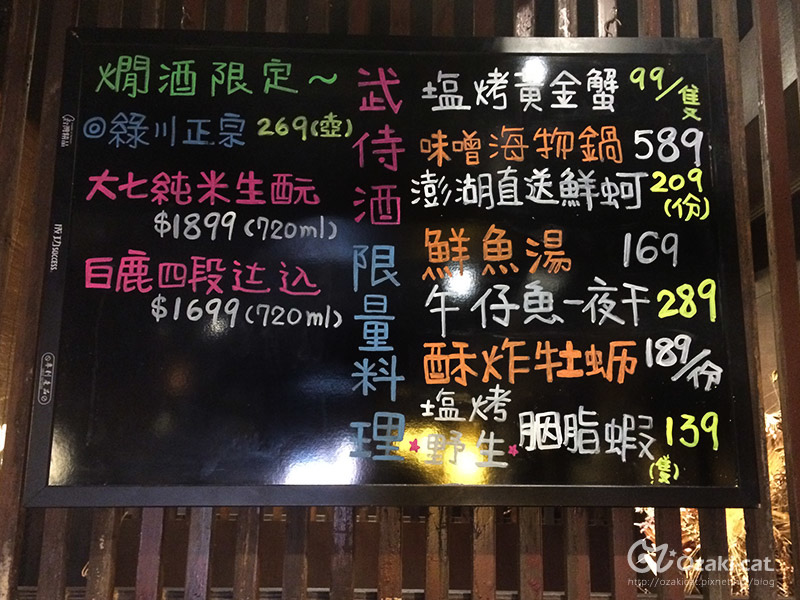 燗酒限定~
◎綠川正宗 269(壺)
大七純米生酛
$1899(720ml)
白鹿四段辻込
$1699(720ml)
武侍酒 限量料理
塩烤黃金蟹 99/隻
味噌海物鍋 589
澎湖直送鮮蚵 209(份)
鮮魚湯 169
午仔魚一夜干 289
酥炸牡蛎 189/份
塩烤
★野生★胭脂蝦 139
(隻)
Ozaki cat
http://ozakicat.pixnet.net/blog